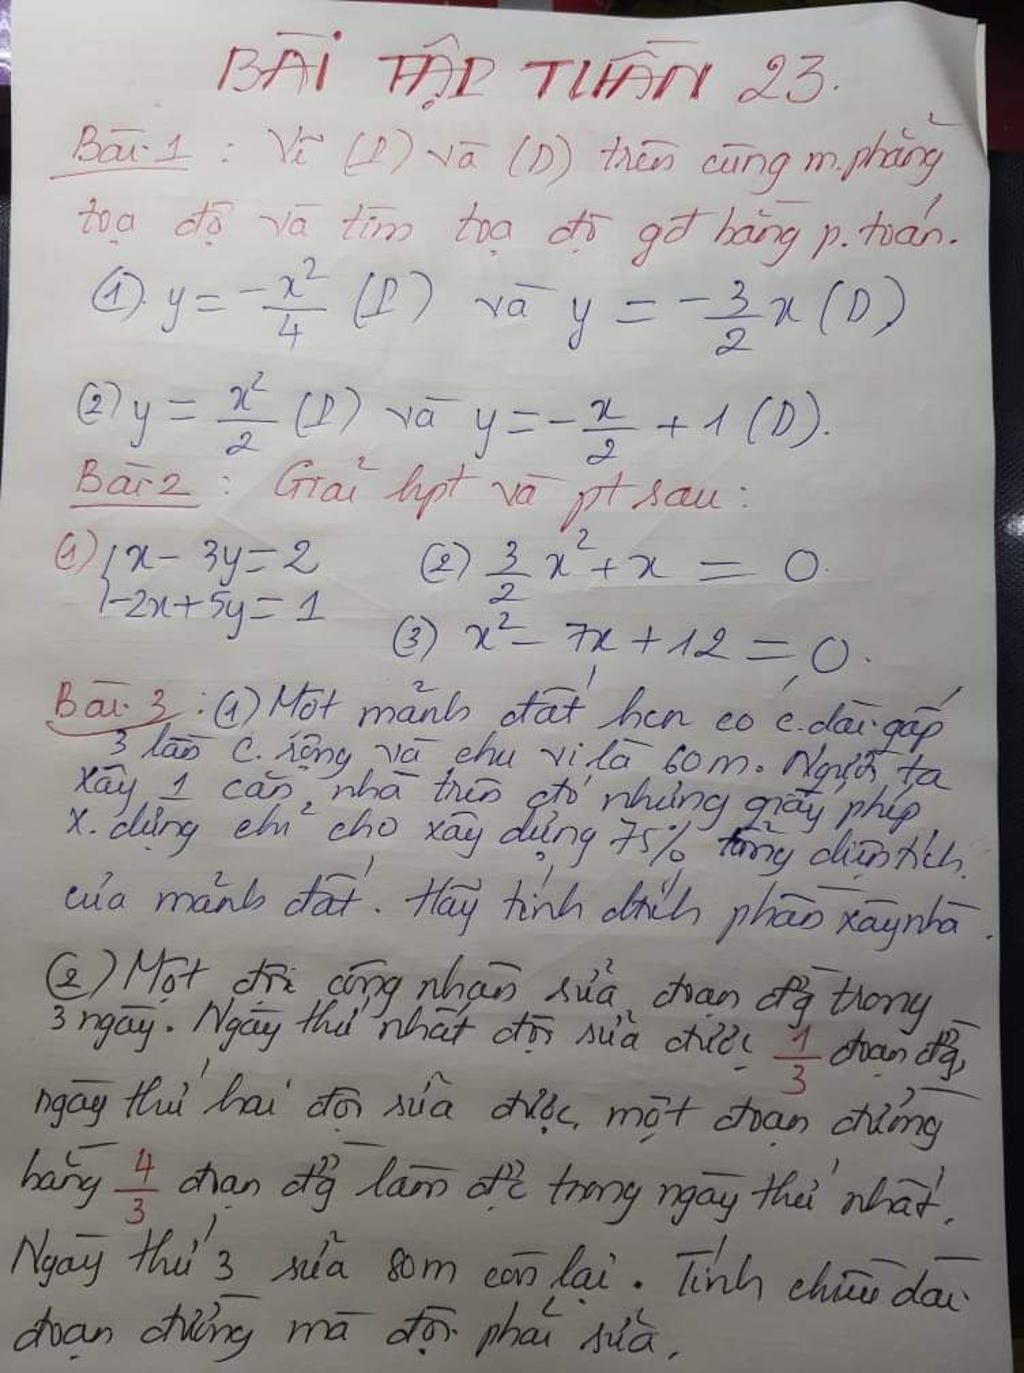 BÀI TẬP TUẦN 23.
Bài 1 : Vẽ (P) và (D) trên cùng m.phẳng
toạ độ và tìm toạ độ gđ bằng p.toán.
(1). y = -x²/4 (P) và y = -3/2 x (D)
(2) y = x²/2 (P) và y = -x/2 + 1 (D).
Bài 2 : Giải hpt và pt sau :
(1) { x - 3y = 2 (2) 3/2 x² + x = 0.
-2x + 5y = 1
(3) x² - 7x + 12 = 0.
Bài 3 : (1) Một mảnh đất hcn có c.dài gấp
3 lần c.rộng và chu vi là 60m. Người ta
xây 1 căn nhà trên đó nhưng giấy phép
x.dựng chỉ cho xây dựng 75% tổng diện tích
của mảnh đất. Hãy tính dtích phần xây nhà.
(2) Một đội công nhân sửa đoạn đg trong
3 ngày. Ngày thứ nhất đội sửa được 1/3 đoạn đg,
ngày thứ hai đội sửa được một đoạn đường
bằng 4/3 đoạn đg làm đc trong ngày thứ nhất.
Ngày thứ 3 sửa 80m còn lại. Tính chiều dài
đoạn đường mà đội phải sửa.